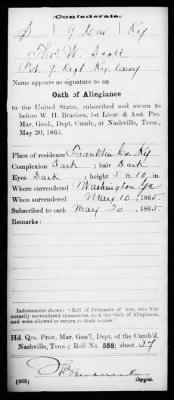 Confederate.
S | 9 Cav | Ky
Thos W. Scott
Pvt. 9 Regt Ky. Cavy
Name appears as signature to an
Oath of Allegiance
to the United States, subscribed and sworn to
before W. H. Bracken, 1st Lieut & Asst. Pro.
Mar. Genl., Dept. Cumb., at Nashville, Tenn.,
May 20, 1865.
Place of residence Franklin Co Ky
Complexion Dark ; hair Dark
Eyes Dark ; height 5 ft. 10 in.
Where surrendered Washington Ga
When surrendered May 10, 1865.
Subscribed to oath May 20, 1865.
Remarks:
Indorsement shows: "Roll of Prisoners of war, who Vol-
untarily surrendered themselves, took the Oath of Allegiance,
and were allowed to return to their homes."
Hd. Qrs. Pro. Mar. Gen'l, Dept. of the Cumb'd.
Nashville, Tenn.; Roll No. 588; sheet 37
(665)
Copyist.